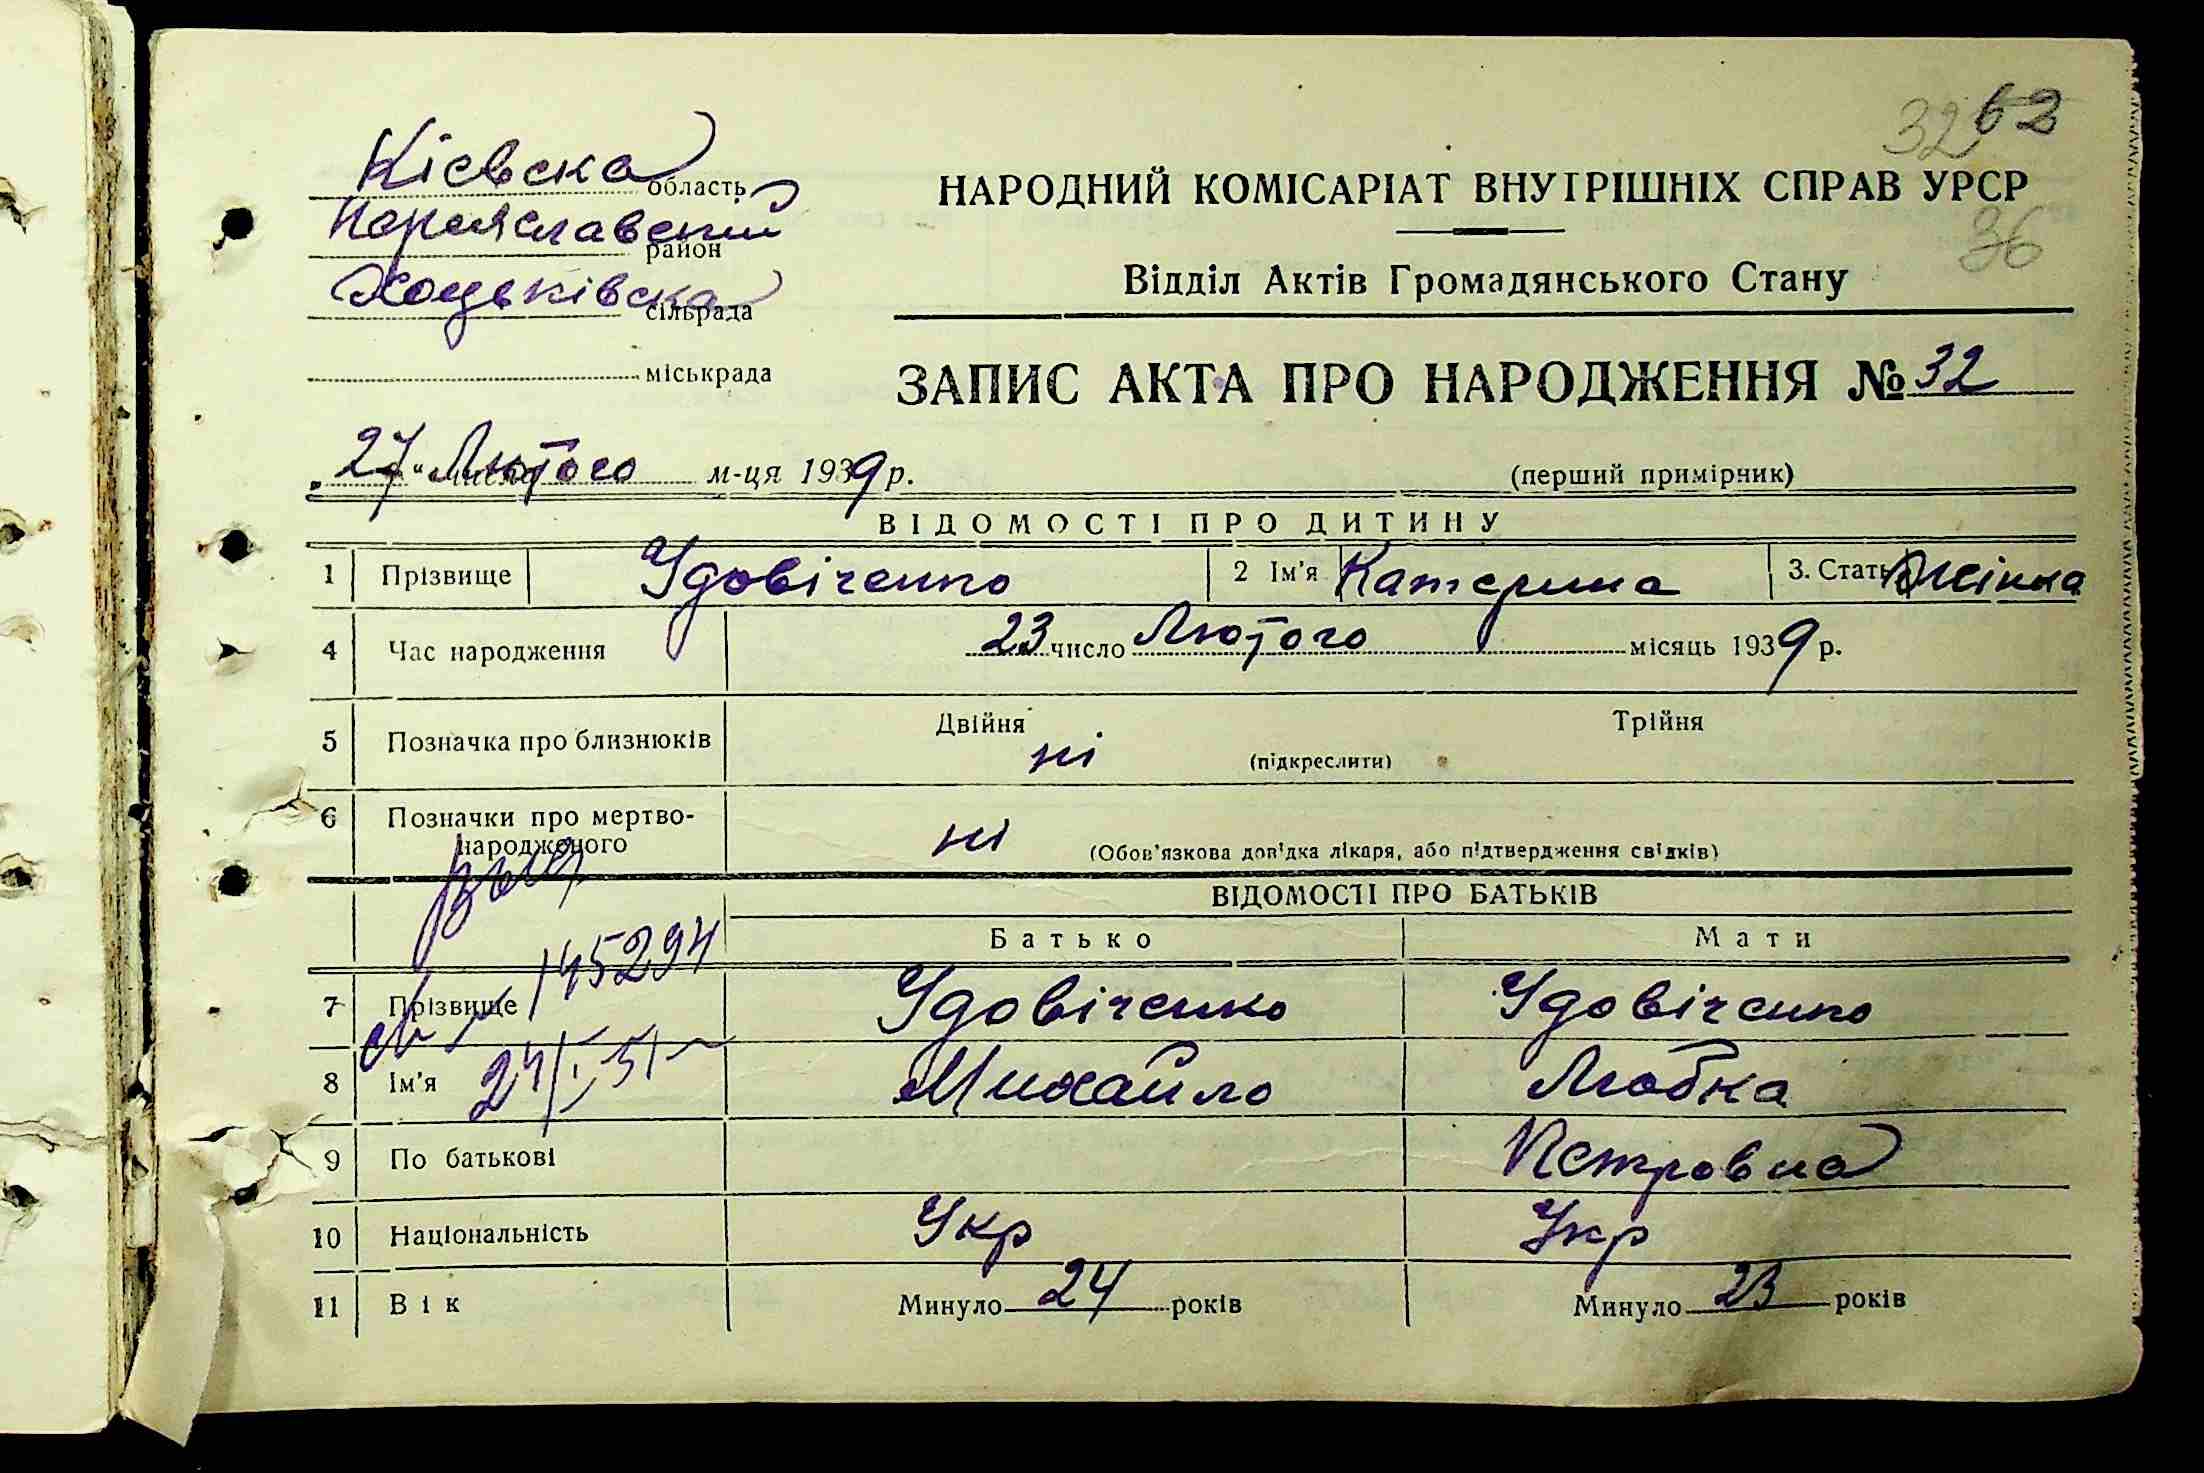 32 62
Кієвска область
Переяславский район
Хоцьківска сільрада
міськрада
НАРОДНИЙ КОМІСАРІАТ ВНУТРІШНІХ СПРАВ УРСР
36
Відділ Актів Громадянського Стану
ЗАПИС АКТА ПРО НАРОДЖЕННЯ № 32
„27“ Лютого м-ця 1939 р.
(перший примірник)
ВІДОМОСТІ ПРО ДИТИНУ
1 Прізвище Удовіченко 2 Ім'я Катерина 3. Стать Жінка
4 Час народження 23 число Лютого місяць 1939 р.
5 Позначка про близнюків Двійня ні (підкреслити) Трійня
6 Позначки про мертво-
народженого ні (Обов'язкова довідка лікаря, або підтвердження свідків)
ВІДОМОСТІ ПРО БАТЬКІВ
Батько Мати
145294
7 Прізвище Удовіченко Удовіченко
8 Ім'я Михайло Любка
9 По батькові Петровна
10 Національність Укр Укр
11 Вік Минуло 24 років Минуло 23 років